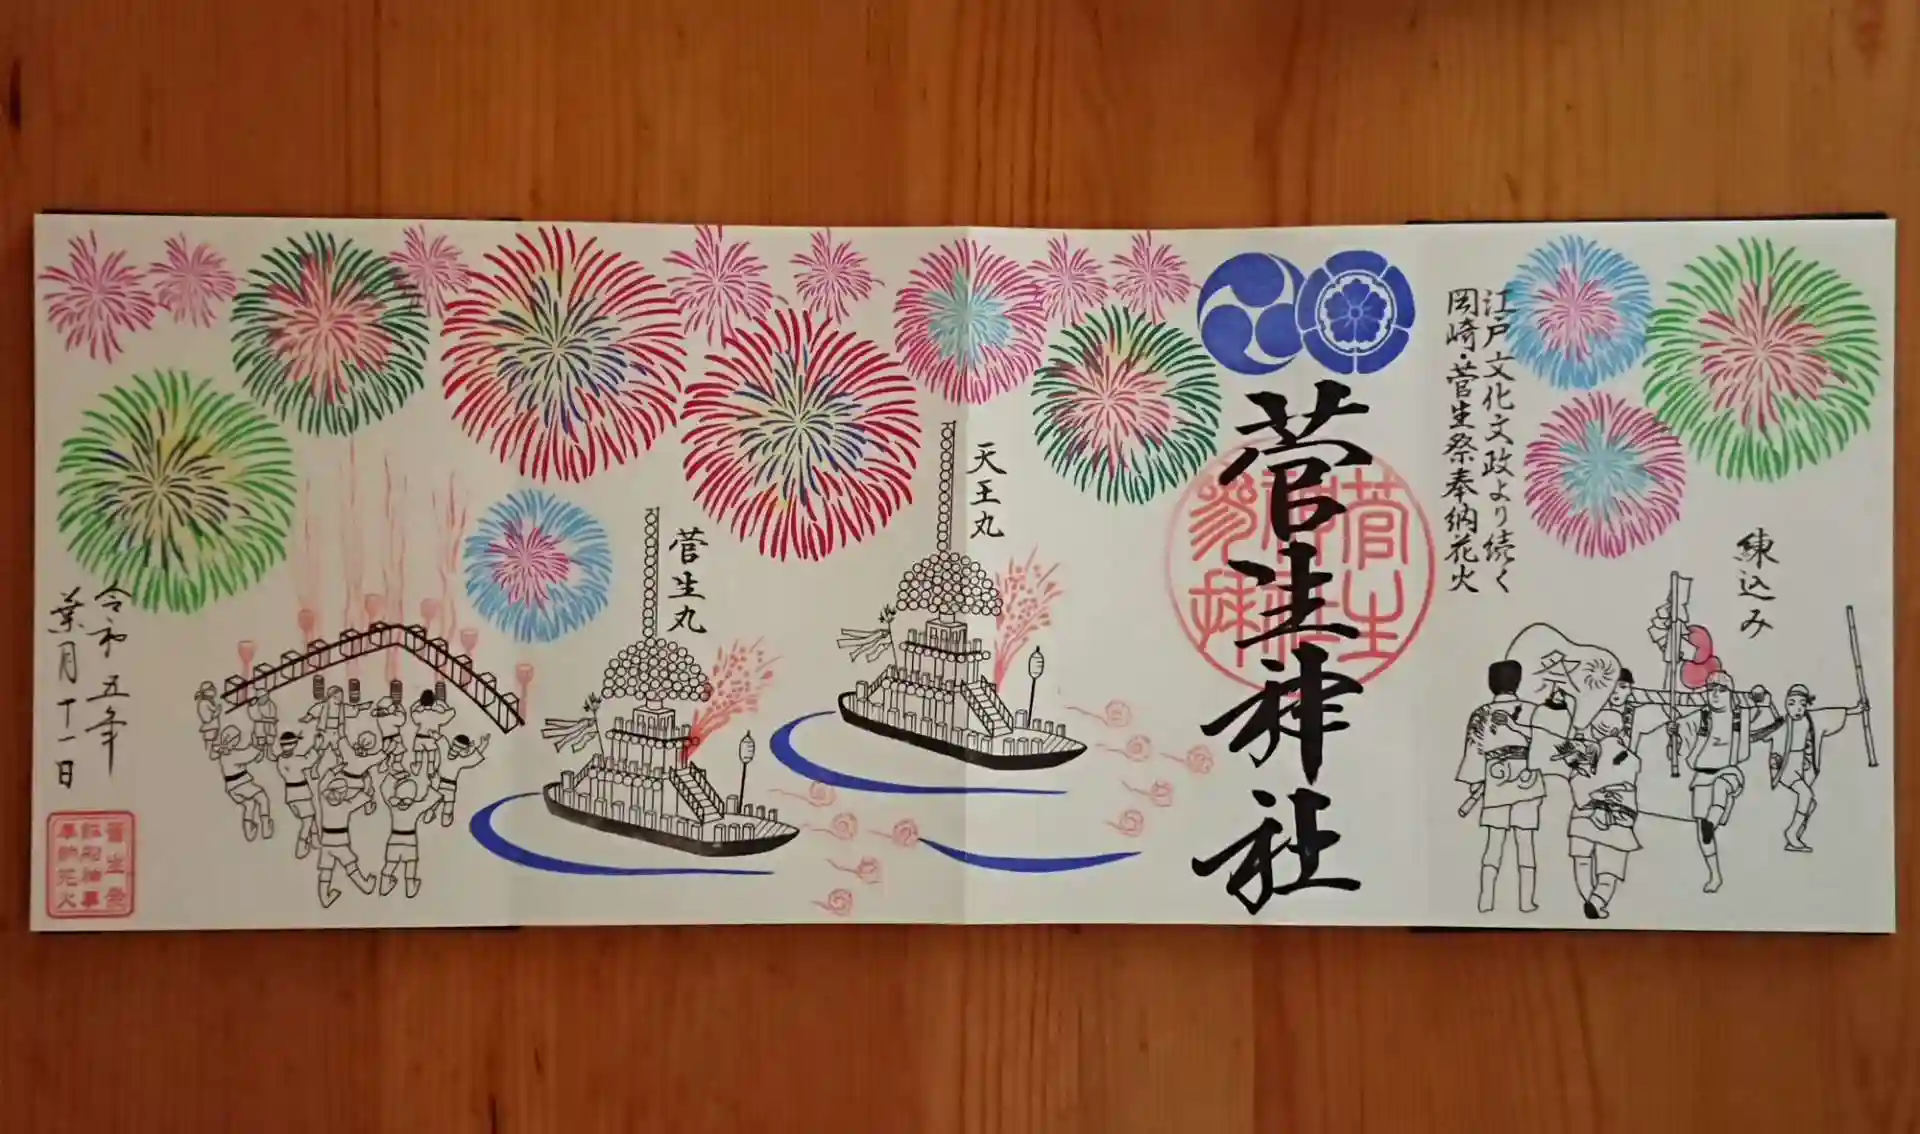 練込み
祭
江戸文化文政より続く
岡崎・菅生祭奉納花火
菅生神社
菅生
神社
参拝
天王丸
菅生丸
令和五年
葉月十一日
菅生祭
鉾船神事
奉納花火